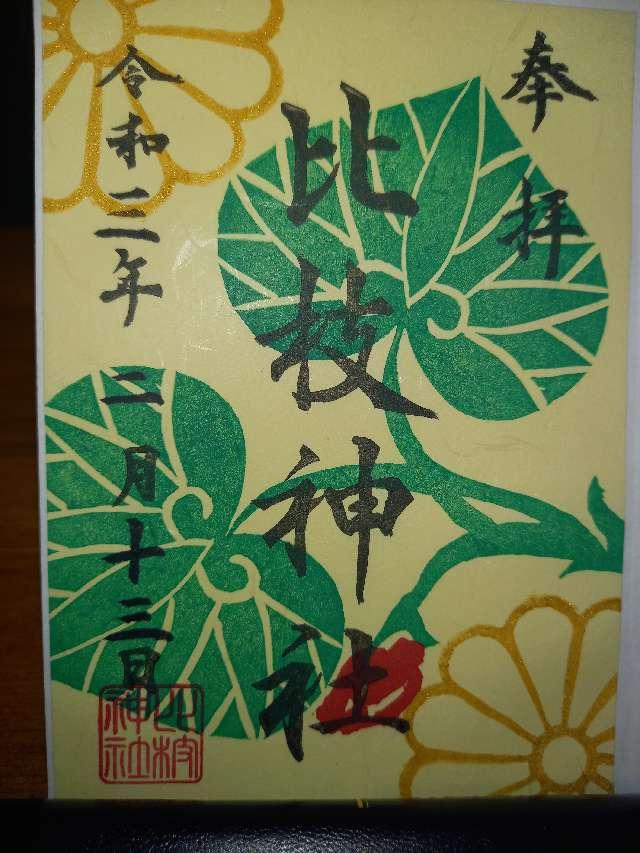 奉拝
比枝神社
令和三年二月十三日
比枝
神社